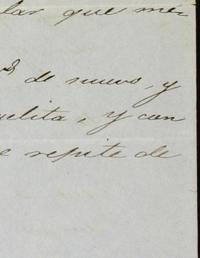 lar que me
de nuevo, y
elita, y con
e repite de